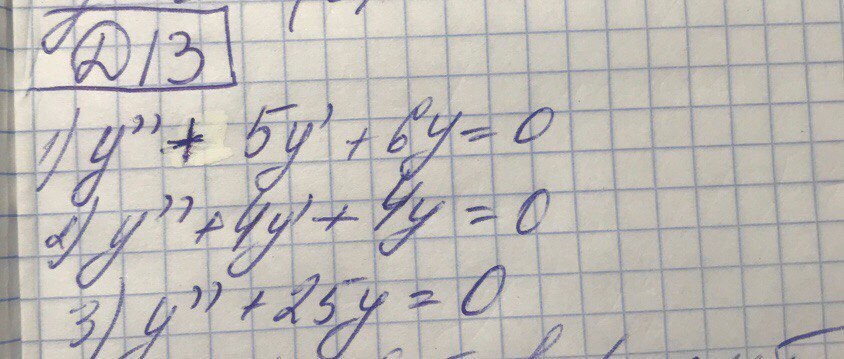 Д/З
1) y'' + 5y' + 6y = 0
2) y'' + 4y' + 4y = 0
3) y'' + 25y = 0